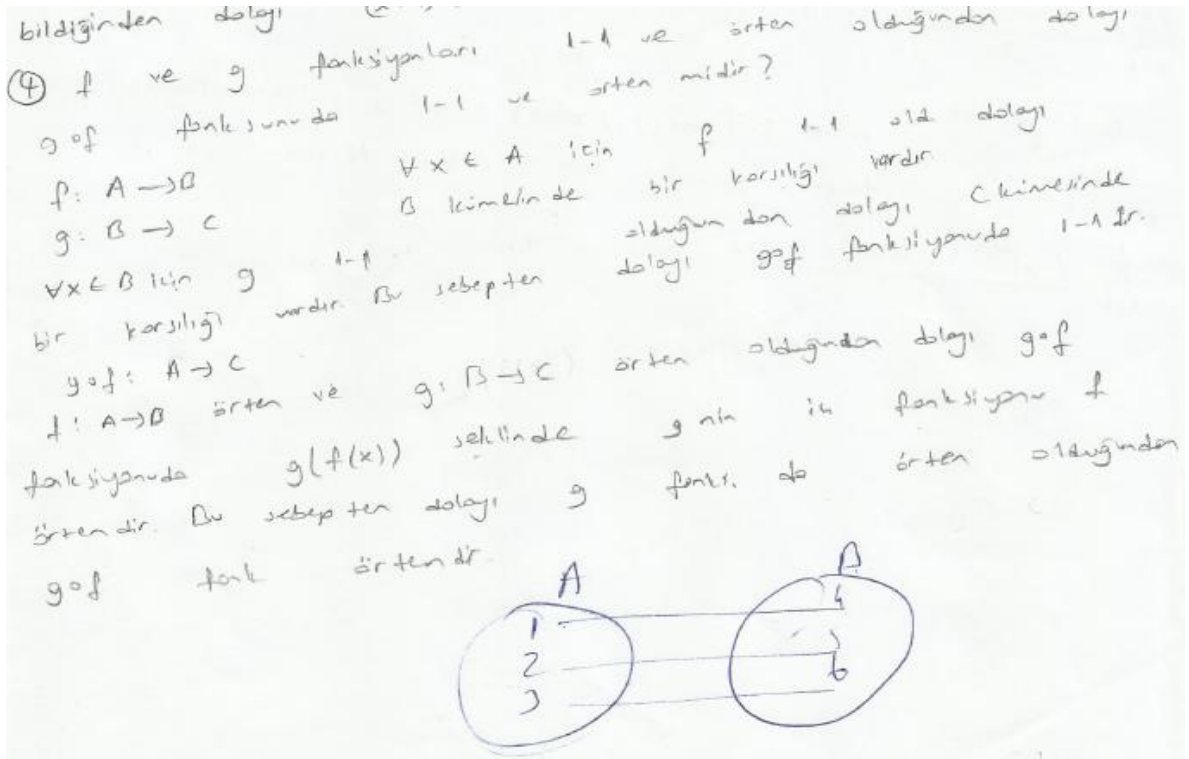 bildiğinden dolayı
④ f ve g fonksiyonları 1-1 ve örten olduğundan dolayı
gof fonksunuda 1-1 ve örten midir?
f: A → B ∀x ∈ A için f 1-1 old dolayı
g: B → C B kümesinde bir karşılığı vardır
∀x ∈ B için g 1-1 olduğundan dolayı C kümesinde
bir karşılığı vardır. Bu sebepten dolayı gof fonksiyonuda 1-1 dr.
gof: A → C
f: A→B örten ve g: B → C örten olduğundan dolayı gof
fonksiyonuda g(f(x)) şeklinde g nin iç fonksiyonu f
örtendir. Bu sebepten dolayı g fonks. da örten olduğundan
gof fonk örtendir.
A B
1 4
2
3 6